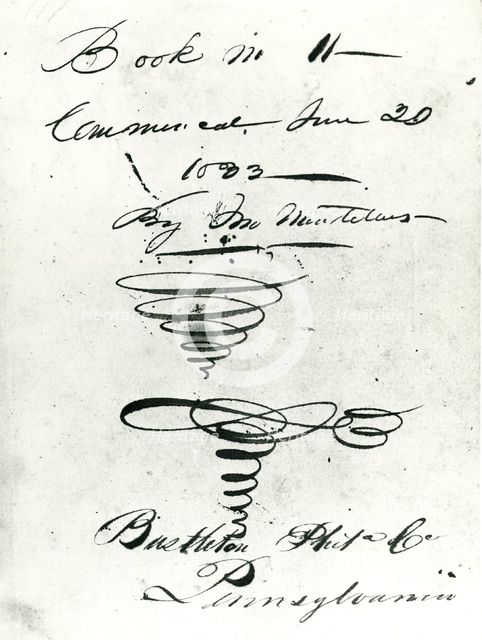 Book no 11
Commenced June 20
1883
By Jno
Bustleton Phila Co
Pennsylvania